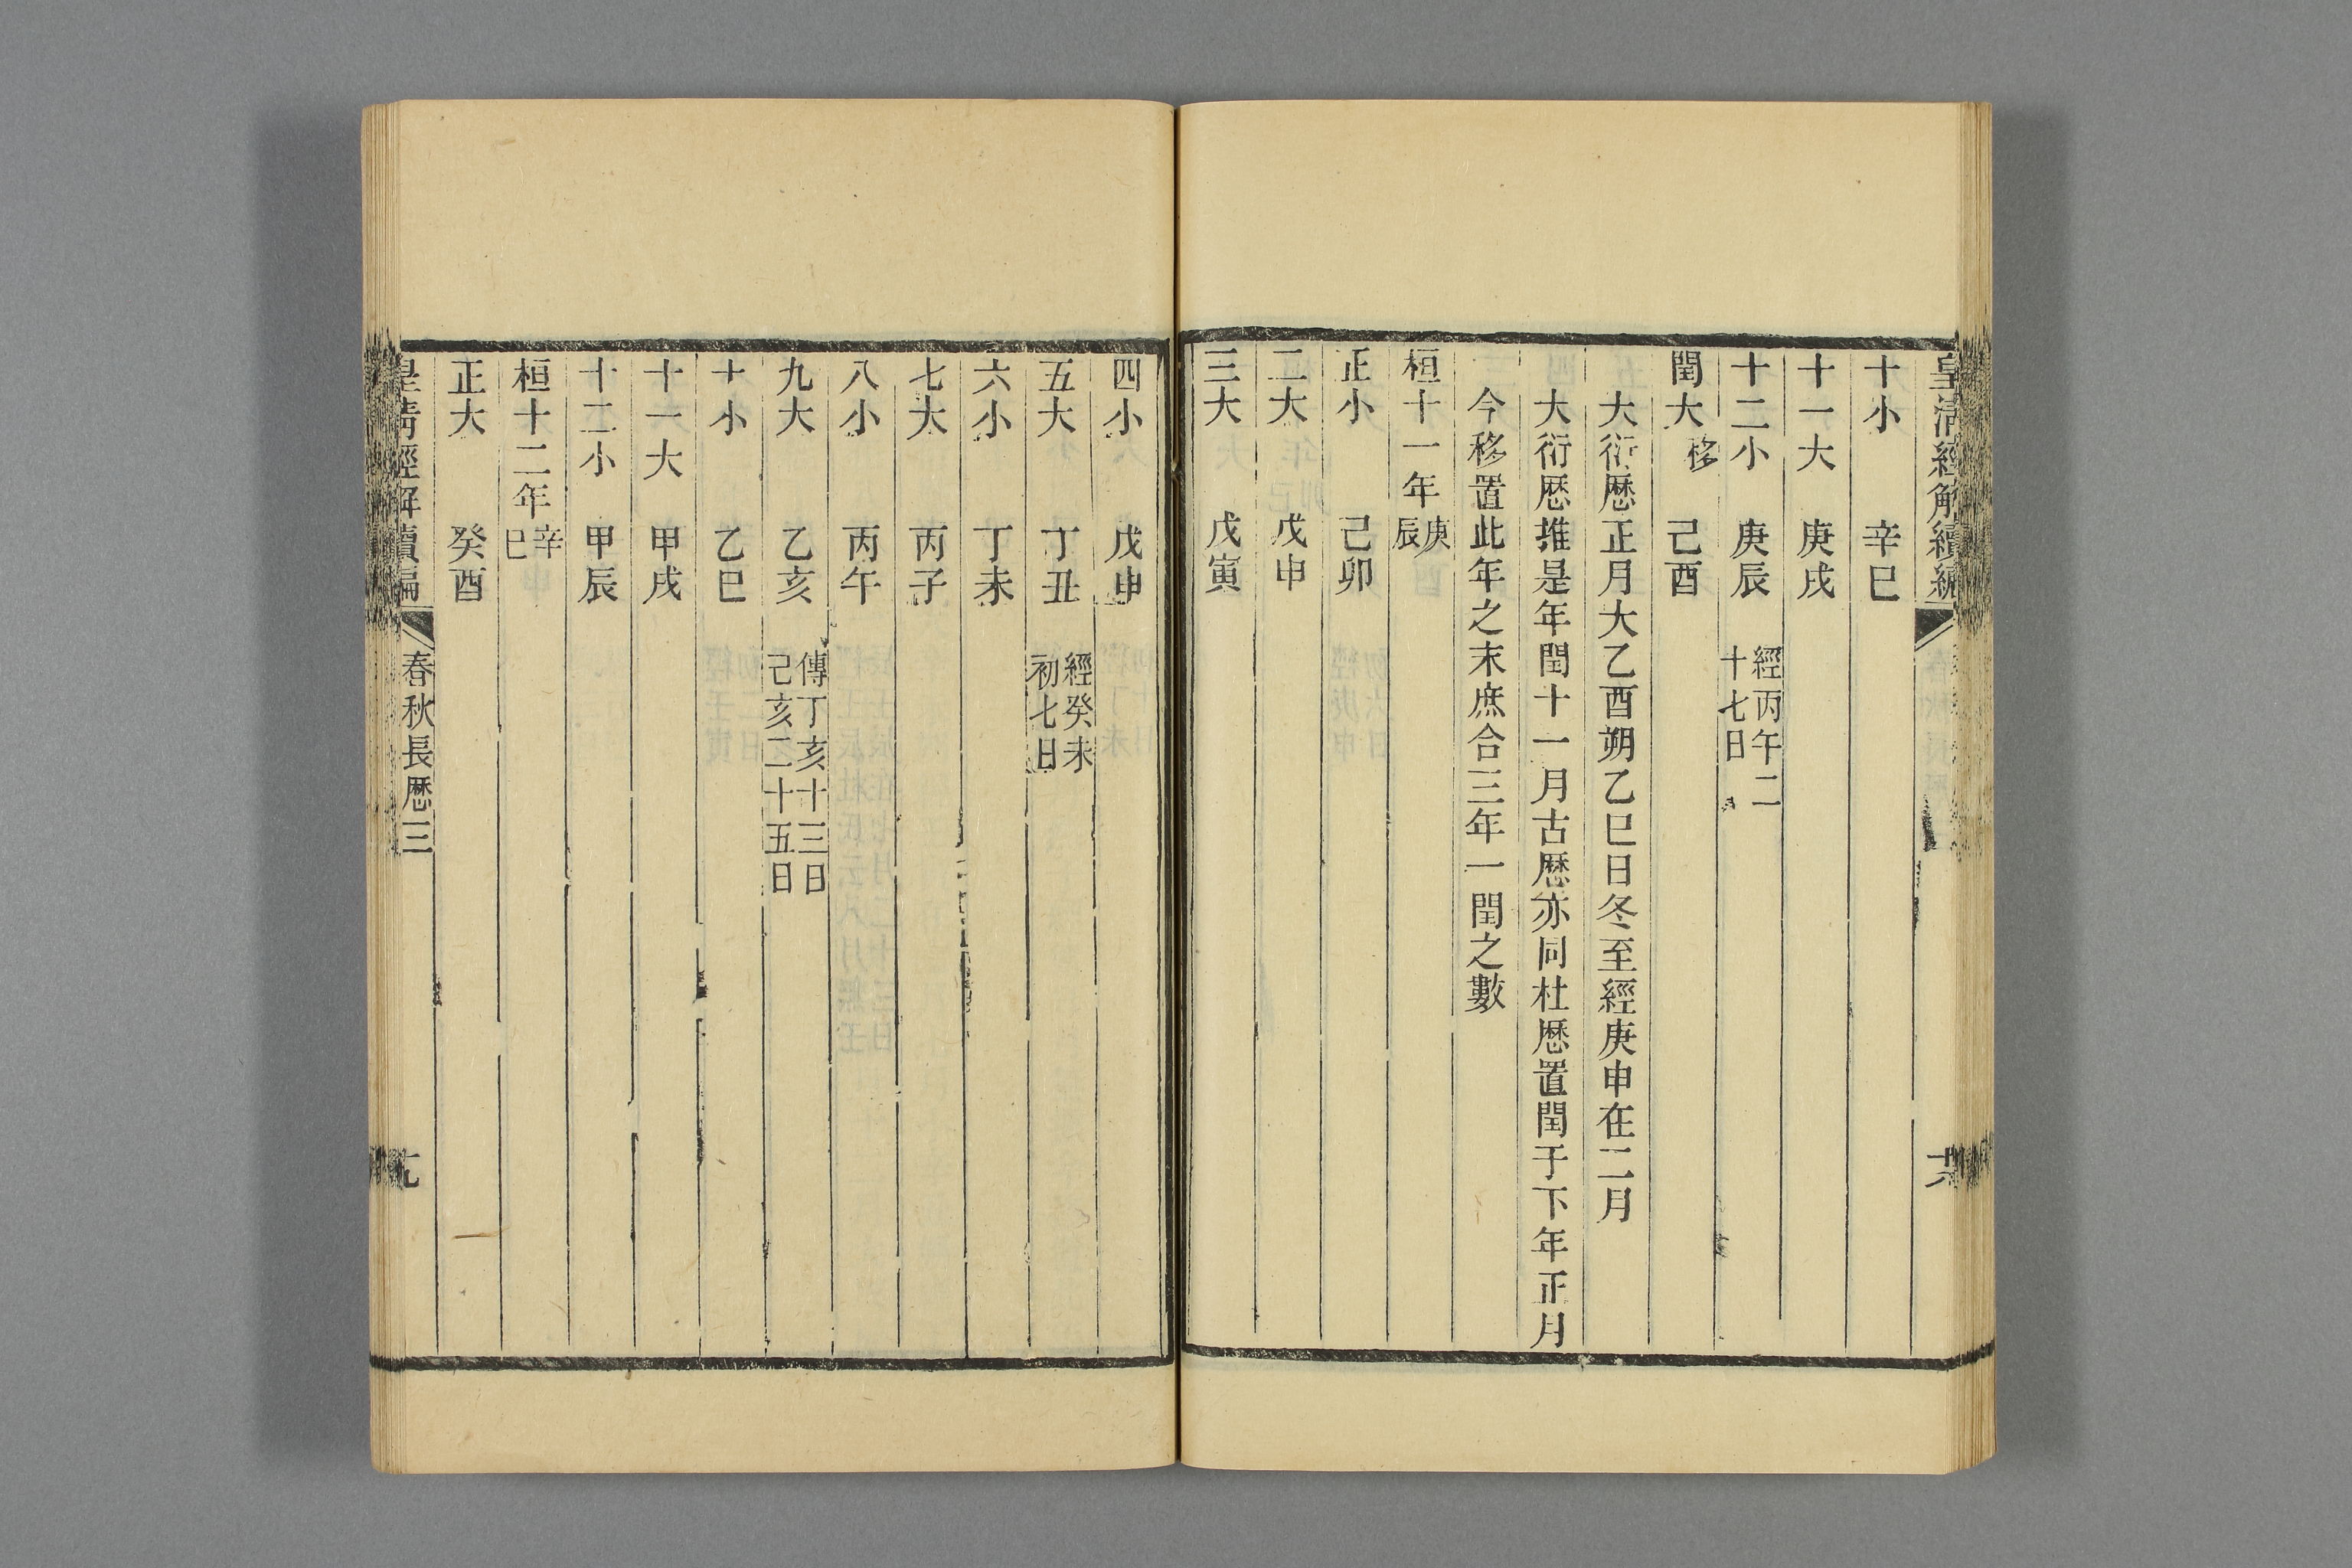 皇清經解續編
十小 辛巳
十一大 庚戌
十二小 庚辰 經丙午二
十七日
閏大 移 己酉
大衍厯正月大乙酉朔乙巳日冬至經庚申在二月
大衍厯推是年閏十一月古厯亦同杜厯置閏于下年正月
今移置此年之末庶合三年一閏之數
桓十一年 庚
辰
正小 己卯
二大 戊申
三大 戊寅
四小 戊申
五大 丁丑 經癸未
初七日
六小 丁未
七大 丙子
八小 丙午
九大 乙亥 傳丁亥十三日
己亥二十五日
十小 乙巳
十一大 甲戌
十二小 甲辰
桓十二年 辛
巳
正大 癸酉
皇清經解續編 春秋長厯三